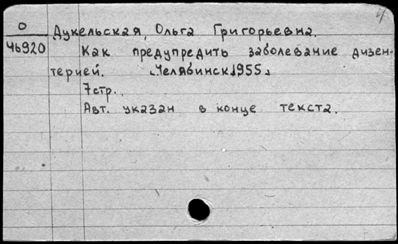 О
46920
Дукельская, Ольга Григорьевна.
Как предупредить заболевание дизен-
терией. [Челябинск]1955.
7стр.
Авт. указан в конце текста.